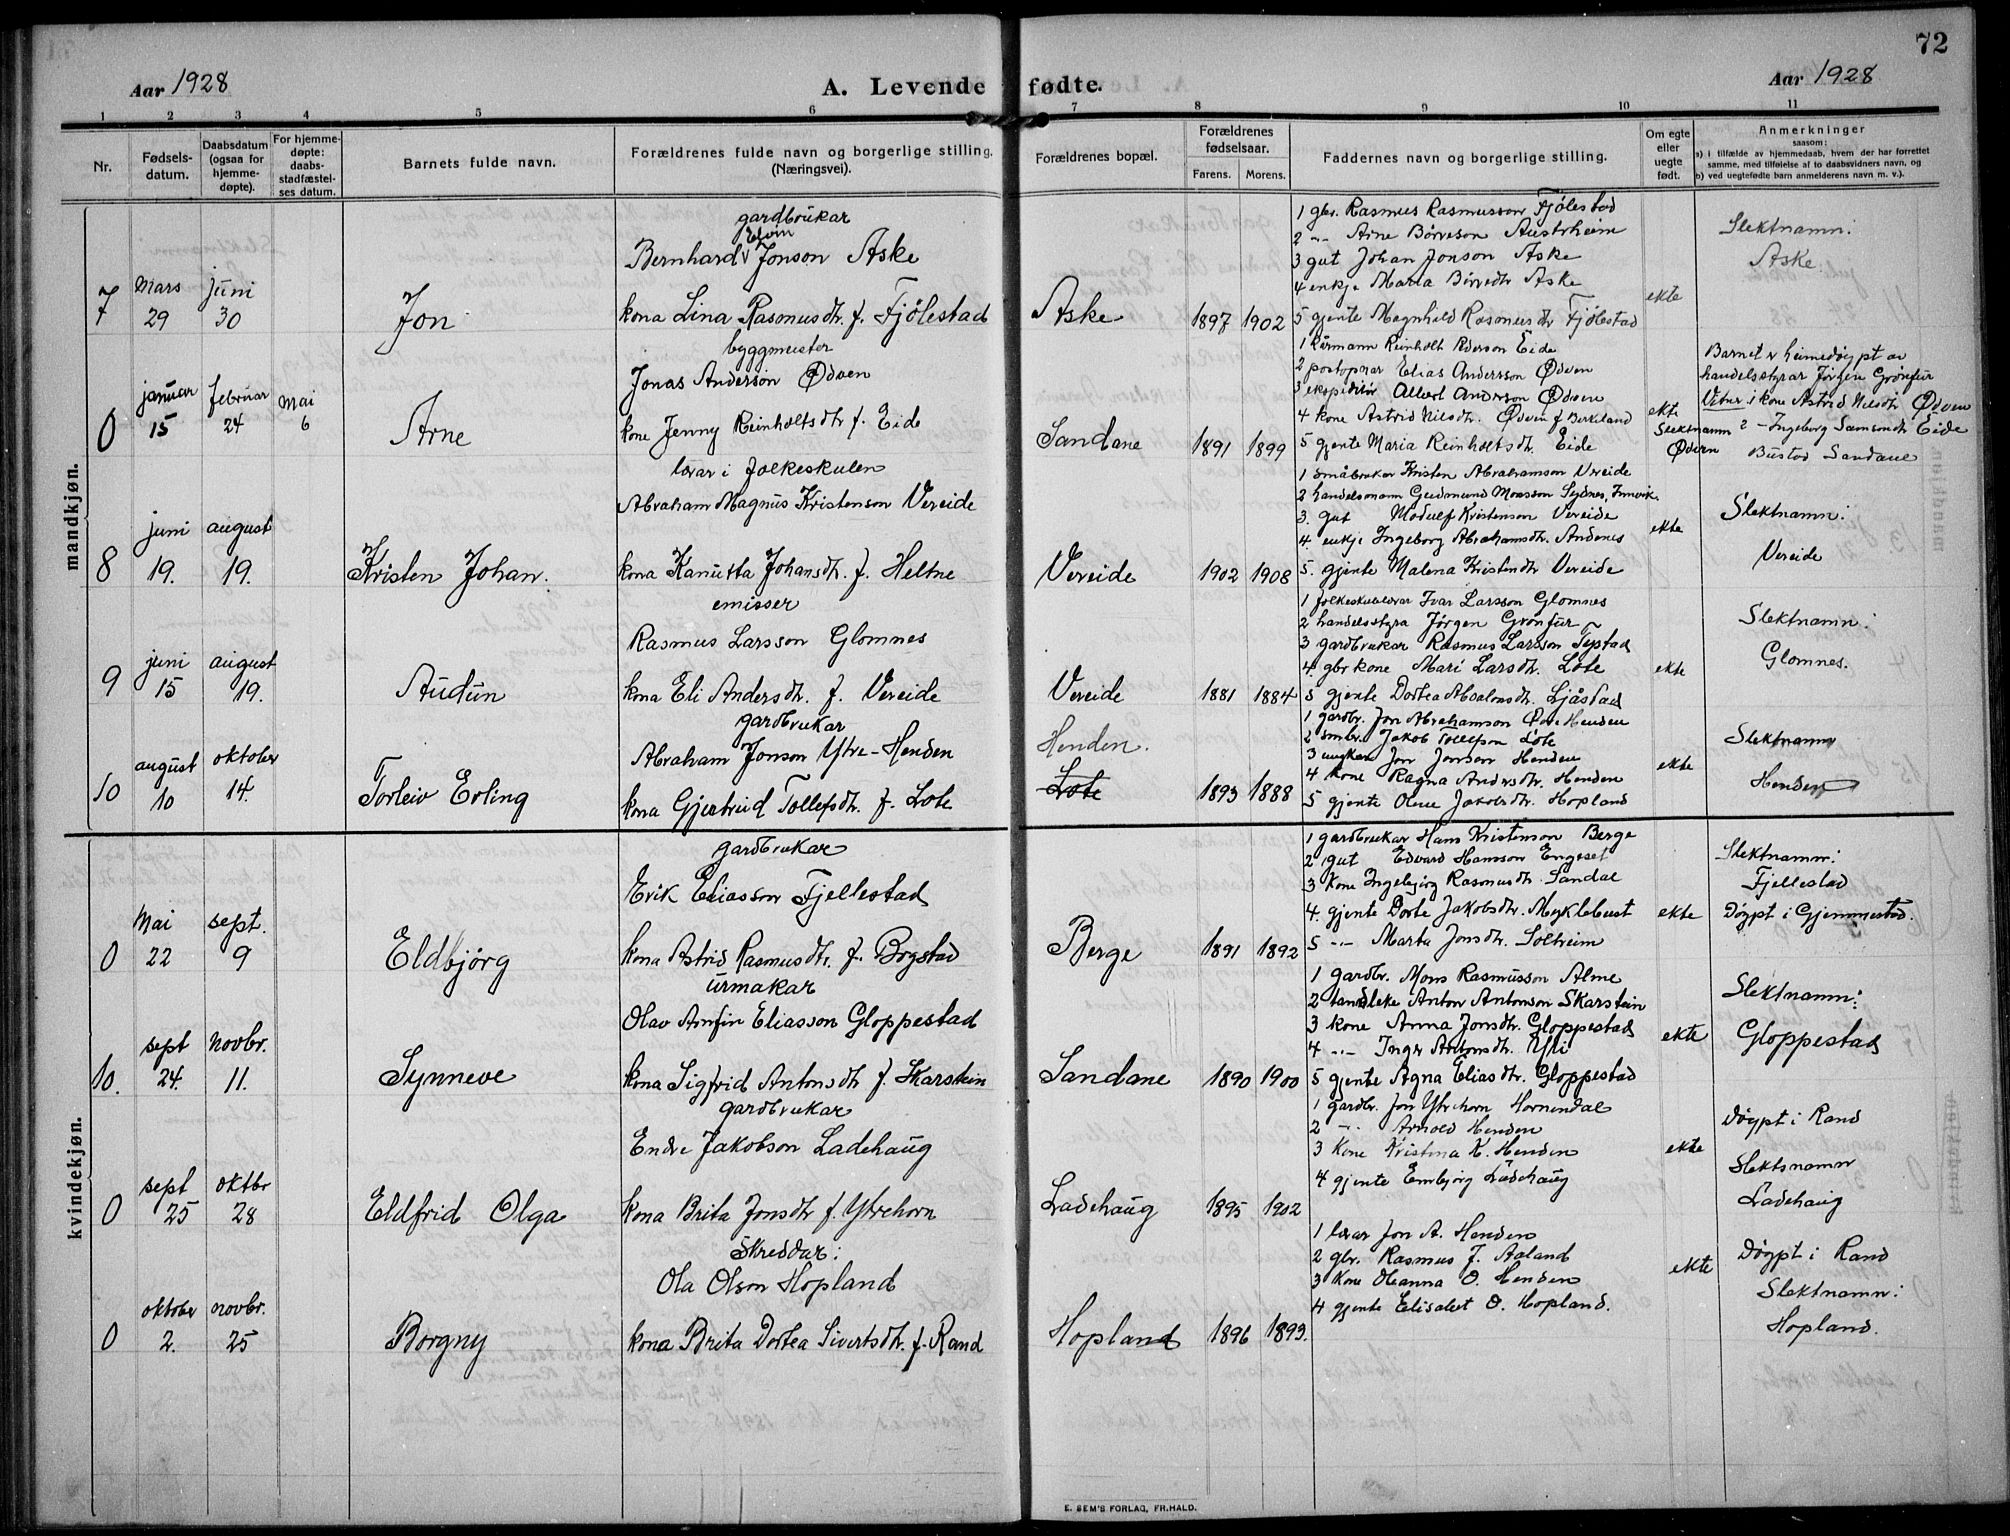 72
Aar 1928
A. Levende fødte.
Aar 1928
1 2 3 4 5 6 7 8 9 10 11
Nr.
Fødsels-
datum.
Daabsdatum
(ogsaa for
hjemme-
døpte).
For hjemme-
døpte:
daabs-
stadfæstel-
ses datum.
Barnets fulde navn.
Forældrenes fulde navn og borgerlige stilling.
(Næringsvei).
Forældrenes bopæl.
Forældrenes
fødselsaar.
Farens. Morens.
Faddernes navn og borgerlige stilling.
Om egte
eller
uegte
født.
Anmerkninger
saasom:
a) i tilfælde av hjemmedaab, hvem der har forrettet
samme, med tilføielse af to daabsvidners navn, og
b) ved uegtefødte barn anmelderens navn m. v.).
mandkjøn.
7
Mars
29
juni
30
Jon
gardbrukar
Elvin
Bernhard Jonson Aske
kona Lina Rasmusdtr. f. Fjölestad
Aske
1897 1902
1 gbr. Rasmus Rasmusson Fjölestad
2 -"- Arne Börreson Austrheim
3 gut Johan Jonson Aske
4 enkje Marta Börredtr Aske
5 gjente Magnhild Rasmusdtr Fjölestad
ekte
Slektnamn:
Aske.
0
januar
15
februar
24
Mai
6
Arne
byggmeister
Jonas Anderson Ødven
kone Jenny Reinholtsdtr. f. Eide
Sandane
1891 1899
1 kårmann Reinholt Pederson Eide
2 postopnar Elias Andersson Ødven
3 ekspeditör Albert Anderson Ødven
4 kone Astrid Nilsdtr. Ødven f Birkeland
5 gjente Maria Reinholtsdtr. Eide
ekte
Slektnamn
Ødven
Barnet er heimedöypt av
handelsstyrar Jørgen Grönfur
Vitner: 1 kone Astrid Nilsdtr Ødven
2 - Ingeborg Samsondtr Eide
Bustad Sandane
8
juni
19.
august
19.
Kristen Johan.
lærar i folkeskulen
Abraham Magnus Kristenson Vereide
kona Kanutta Johansdtr. f. Heltne
Vereide
1902 1908
1 småbrukar Kristen Abrahamson Vereide
2 handelsmann Gudmund Monsson Sydnes, Innvik.
3. gut Modulf Kristenson Vereide
4. enkje Ingeborg Abrahamsdtr. Andenes
5. gjente Malena Kristendtr Vereide
ekte
Slektnamn:
Vereide
9
juni
15
august
19.
Audun
emisser
Rasmus Larsson Glomnes
kona Eli Andersdtr. f. Vereide
Vereide
1881 1884
1 folkeskulelærar Ivar Larsson Glomnes
2 handelsstyra Jørgen Grönfur
3 gardbrukar Rasmus Larsson Tystad
4. gbr kone Mari Larsdtr. Lote
5 gjente Dortea Absalonsdtr. Ljåstad
ekte
Slektnamn:
Glomnes.
10
august
10
oktober
14.
Torleiv Erling
gardbrukar
Abraham Jonson Ytre-Henden
kona Gjertrud Tollefsdtr. f. Lote
Henden.
Lote
1893 1888
1 gardbr. Jon Abrahamson Øvre Henden
2 smbr. Jakob Tollefson Lote
3 ungkar Jon Jonson Henden
4 kone Ragna Andersdtr. Henden
5 gjente Oline Jakobsdtr. Hopland
ekte
Slektnamn
Henden
kvindekjøn.
0
Mai
22
sept.
9
Eldbjörg
gardbrukar
Erik Eliasson Fjellestad
kona Astrid Rasmusdtr. f. Bogstad
Berge
1891 1892
1 gardbrukar Hans Kristenson Berge
2 gut Edvard Hansson Engeset
3 kone Ingebjörg Rasmusdtr. Sandal
4. gjente Dorte Jakobsdtr. Myklebust
5 -"- Marta Jonsdtr. Solheim
ekte
Slektnamn:
Fjellestad
Döypt i Gjemmestad.
10.
sept
24.
Novbr.
11.
Synneve
urmakar
Olav Arnfin Eliasson Gloppestad
kona Sigfrid Antonsdtr f. Skarstein
Sandane
1890 1900
1 gardbr. Mons Rasmusson Alme
2 tandleke Anton Antonson Skarstein
3 kone Anna Jonsdtr. Gloppestad
4 -"- Inger Antonsdtr. Yli
5 gjente Agna Eliasdtr. Gloppestad
ekte
Slektnamn:
Gloppestad
0
sept
25
oktbr
28
Eldfrid Olga
gardbrukar
Endre Jakobson Ladehaug
kona Brita Jonsdtr f. Ytrehorn
Ladehaug
1895 1902
1 gardbr. Jon Ytrehorn Hornindal
2 -"- Arnold Henden
3 kone Kristina K. Henden
4 gjente Embjörg Ladehaug
ekte
Döypt i Rand
Slektsnamn
Ladehaug
0
oktober
2.
novbr.
25
Borgny
Skreddar:
Ola Olson Hopland
kona Brita Dortea Sivertsdtr. f. Rand
Hopland
1896 1893.
1 lærar Jon A. Henden
2 gbr. Rasmus J. Aaland
3 kone Oleanna O. Henden
4 gjente Elisabet O. Hopland.
ekte
Döypt i Rand
Slektnamn:
Hopland.
E. SEM'S FORLAG, FR.HALD.